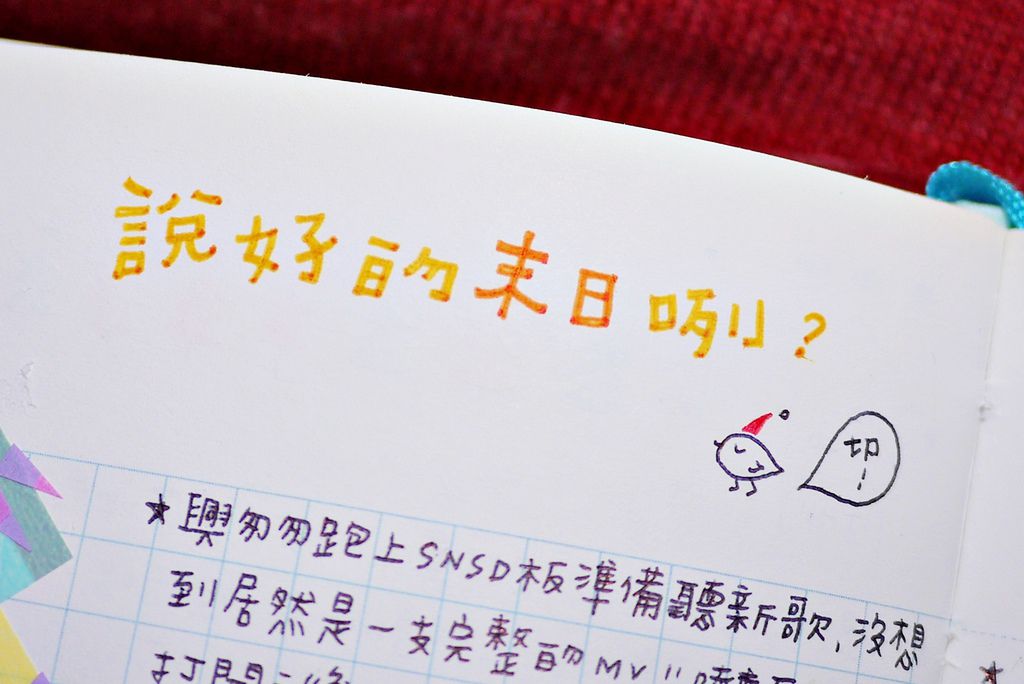 說好的末日咧?
切!
★興匆匆跑上SNSD板準備聽新歌,沒想
到居然是一支完整的MV!!
打開